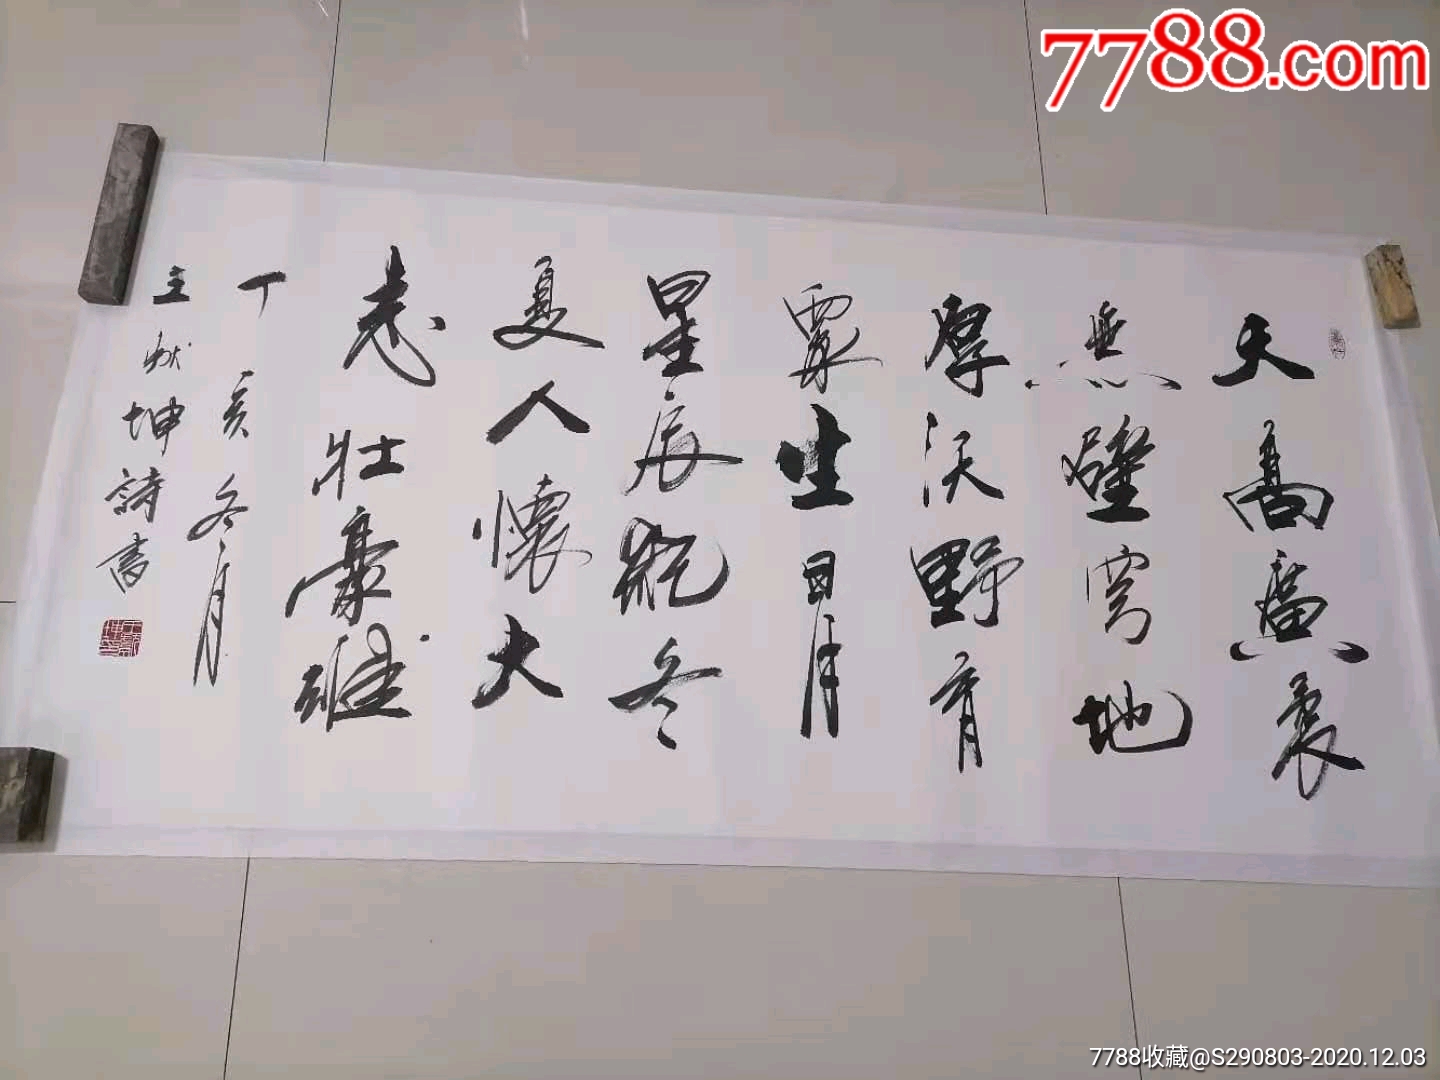 天高廣袤
無壁穹地
厚沃野育
眾生日月
星辰觀冬
夏人懷大
志壯豪雄
丁亥冬月
王猷坤詩書
7788.com
7788收藏@S290803-2020.12.03